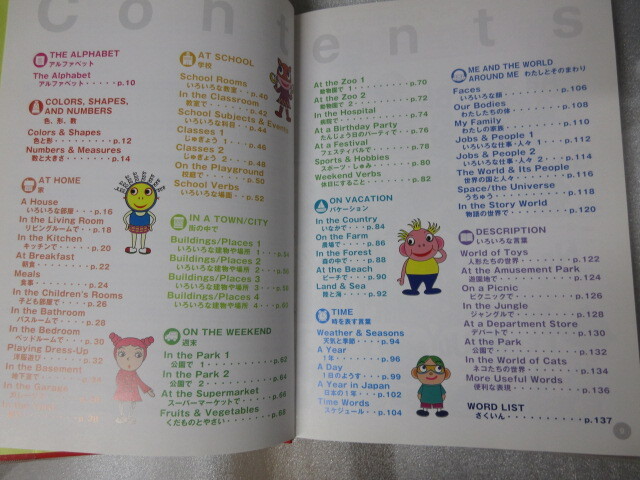 Contents
THE ALPHABET
アルファベット
The Alphabet
アルファベット・・・・・p.10
COLORS, SHAPES,
AND NUMBERS
色、形、数
Colors & Shapes
色と形・・・・・・・・p.12
Numbers & Measures
数と大きさ・・・・・・p.14
AT HOME
家
A House
いろいろな部屋・・・p.16
In the Living Room
リビングルームで・・p.18
In the Kitchen
キッチンで・・・・・p.20
At Breakfast
朝食・・・・・・・・p.22
Meals
食事・・・・・・・・p.24
In the Children's Rooms
子ども部屋で・・・・p.26
In the Bathroom
バスルームで・・・・p.28
In the Bedroom
ベッドルームで・・・p.30
Playing Dress-Up
洋服遊び・・・・・・p.32
In the Basement
地下室で
In the Garage
AT SCHOOL
学校
School Rooms
いろいろな教室・・p.40
In the Classroom
教室で・・・・・・p.42
School Subjects & Events
いろいろな科目・・p.44
Classes 1
じゅぎょう 1・・・p.46
Classes 2
じゅぎょう 2・・・p.48
On the Playground
校庭で・・・・・・p.50
School Verbs
いろいろな場面・・p.52
IN A TOWN/CITY
街の中で
Buildings/Places 1
いろいろな建物や場所 1
Buildings/Places 2
いろいろな建物や場所 2
Buildings/Places 3
いろいろな建物や場所 3
Buildings/Places 4
いろいろな建物や場所 4
ON THE WEEKEND
週末
In the Park 1
公園で 1・・・・・p.62
In the Park 2
公園で 2・・・・・p.64
At the Supermarket
スーパーマーケットで・p.66
Fruits & Vegetables
くだものとやさい・・p.68
At the Zoo 1
動物園で 1・・・・p.70
At the Zoo 2
動物園で 2・・・・p.72
In the Hospital
病院で・・・・・・p.74
At a Birthday Party
たんじょう日のパーティーで・p.76
At a Festival
フェスティバルで・・p.78
Sports & Hobbies
スポーツ・しゅみ・・p.80
Weekend Verbs
休日にすること・・・p.82
ON VACATION
バケーション
In the Country
いなかで・・・・・p.84
On the Farm
農場で・・・・・・p.86
In the Forest
森の中で・・・・・p.88
At the Beach
ビーチで・・・・・p.90
Land & Sea
陸と海・・・・・・p.92
TIME
時を表す言葉
Weather & Seasons
天気と季節・・・・p.94
A Year
1年・・・・・・・p.96
A Day
1日のようす・・・p.99
A Year in Japan
日本の1年・・・p.102
Time Words
スケジュール・・p.104
ME AND THE WORLD
AROUND ME わたしとそのまわり
Faces
いろいろな顔・・・・p.106
Our Bodies
わたしたちの体・・・p.108
My Family
わたしの家族・・・・p.110
Jobs & People 1
いろいろな仕事・人々 1・・p.112
Jobs & People 2
いろいろな仕事・人々 2・・p.114
The World & Its People
世界の国と人々・・・p.116
Space/the Universe
うちゅう・・・・・・p.118
In the Story World
物語の世界で・・・・p.120
DESCRIPTION
いろいろな言葉
World of Toys
人形たちの世界・・・p.122
At the Amusement Park
遊園地で・・・・・・p.124
On a Picnic
ピクニックで・・・・p.126
In the Jungle
ジャングルで・・・・p.128
At a Department Store
デパートで・・・・・p.130
At the Park
公園で・・・・・・・p.132
In the World of Cats
ネコたちの世界・・・p.134
More Useful Words
便利な表現・・・・・p.136
WORD LIST
さくいん・・・・・・p.137